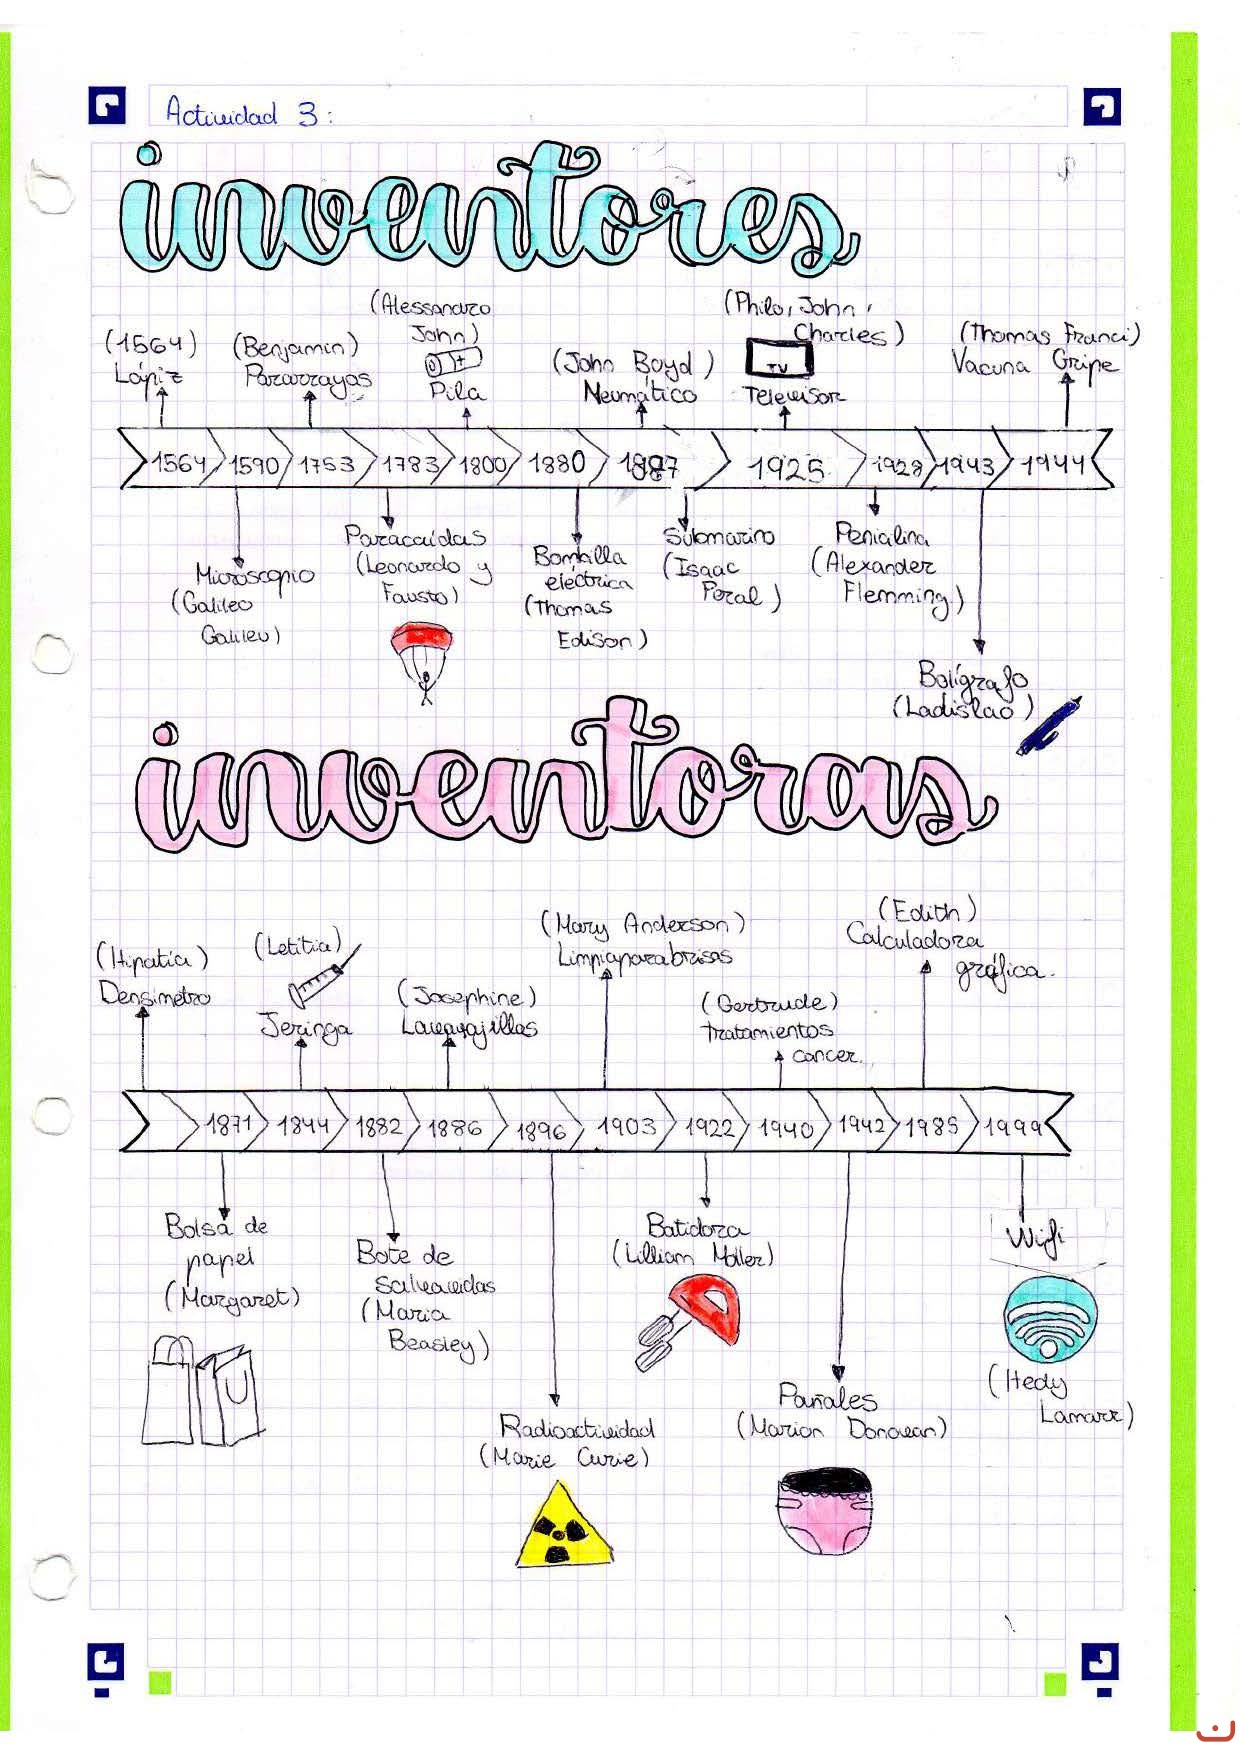 Actividad 3:
inventores
(Alessandro
John)
Pila
(Philo, John,
Charles)
TV
Televisor
(1564)
Lápiz
(Benjamin)
Pararrayos
(John Boyd)
Neumático
(Thomas Franci)
Vacuna Gripe
1564 1590 1753 1783 1800 1880 1887 1925 1928 1943 1944
Microscopio
(Galileo
Galileu)
Paracaídas
(Leonardo y
Fausto)
Bombilla
eléctrica
(Thomas
Edison)
Submarino
(Isaac
Peral)
Penicilina
(Alexander
Flemming)
Bolígrafo
(Ladislao)
inventoras
(Hipatia)
Densimetro
(Letitia)
Jeringa
(Josephine)
Lavavajillas
(Mary Anderson)
Limpiaparabrisas
(Gertrude)
Tratamientos
cancer.
(Edith)
Calculadora
gráfica.
1871 1844 1882 1886 1896 1903 1922 1940 1942 1985 1999
Bolsa de
papel
(Margaret)
Bote de
salvavidas
(Maria
Beasley)
Radioactividad
(Marie Curie)
Batidora
(Lilliam Moller)
Pañales
(Marion Donovan)
Wifi
(Hedy
Lamarr)